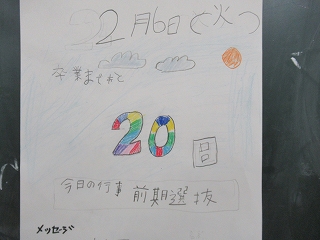 2月6日(火)
卒業まであと
20日
今日の行事 前期選抜
メッセージ